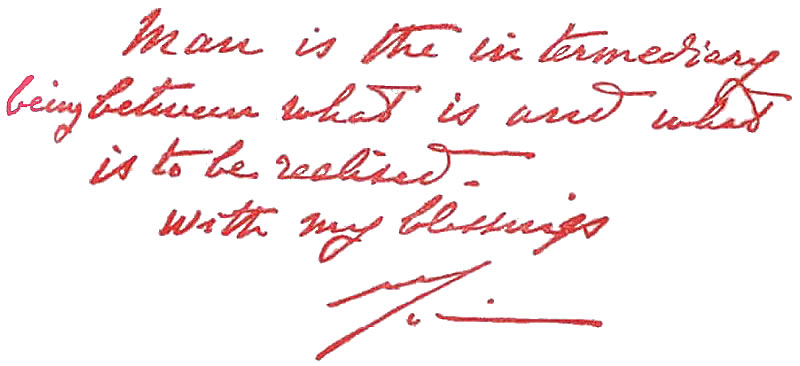 Man is the intermediary
being between what is and what
is to be realised.
with my blessings